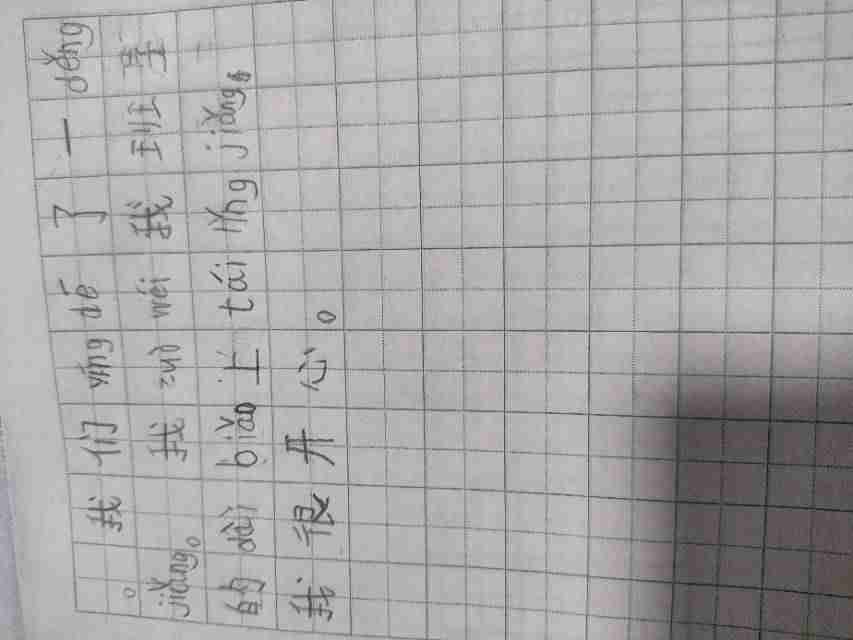 我们yíng dé了一děng
jiǎng。我zuò wéi我班
的dài biǎo上tái lǐng jiǎng。
我很开心。